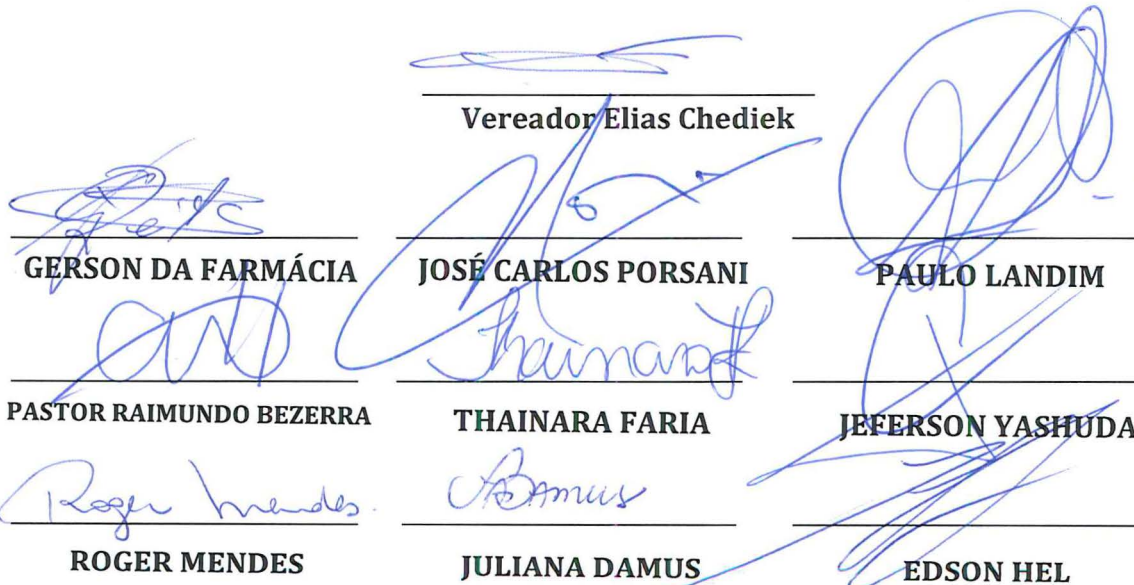 Vereador Elias Chediek
GERSON DA FARMÁCIA JOSÉ CARLOS PORSANI PAULO LANDIM
Thainara
PASTOR RAIMUNDO BEZERRA THAINARA FARIA JEFERSON YASHUDA
Roger Mendes. Damus
ROGER MENDES JULIANA DAMUS EDSON HEL